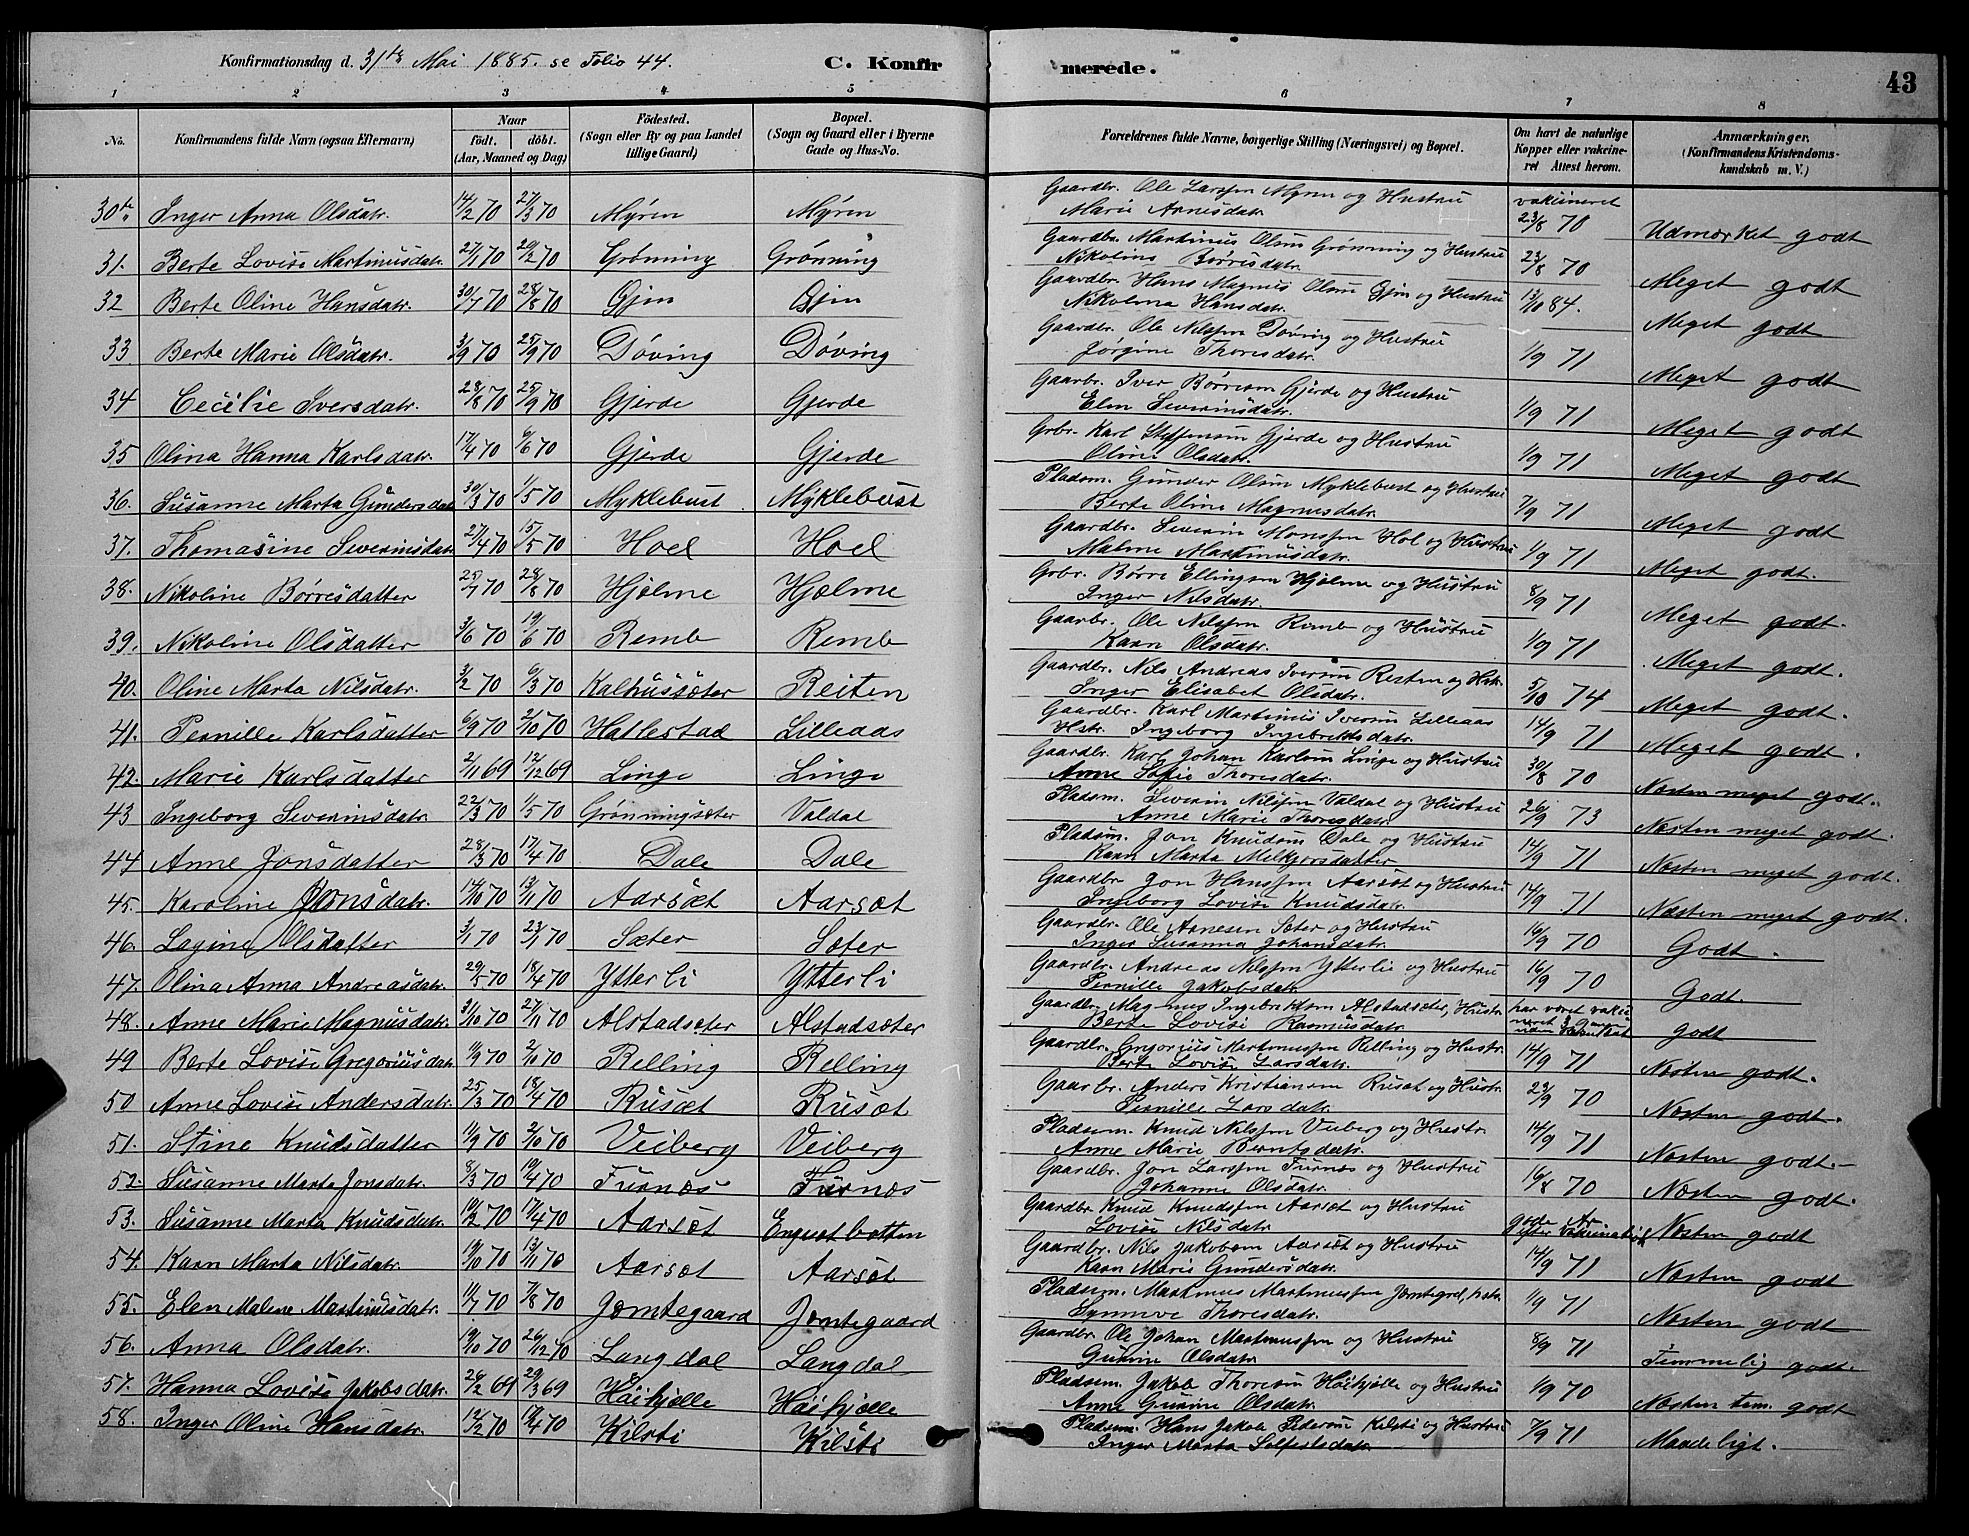 Konfirmationsdag d. 31te Mai 1885. se Folio 44.
C. Konfir
merede.
43
1 2 3 4 5 6 7 8
No.
Konfirmandens fulde Navn (ogsaa Efternavn)
Naar
födt. döbt.
(Aar, Maaned og Dag)
Födested.
(Sogn eller By og paa Landet tillige Gaard)
Bopæl.
(Sogn og Gaard eller i Byerne Gade og Hus-No.
Forældrenes fulde Navne, borgerlige Stilling (Næringsvei) og Bopæl.
Om havt de naturlige Kopper eller vakcineret Attest herom.
Anmærkninger.
(Konfirmandens Kristendomskundskab m. V.)
30te Inger Anna Olsdatr. 14/2 70 27/3 70 Myren Myren Gaardbr. Ole Larssen Myren og Hustru
Marie Arnesdatr. vakcineret 23/8 70 Udmærket godt
31. Berte Lovise Martinusdatr. 27/1 70 20/2 70 Grønning Grønning Gaardbr. Martinus Olsen Grønning og Hustru
Nikoline Børresdatr. 23/8 70 Meget godt
32 Berte Oline Hansdatr. 30/7 70 28/8 70 Gjen Gjen Gaardbr. Hans Magnus Olsen Gjen og Hustru
Nikolina Hansdatr. 13/10 84. Meget godt
33 Berte Marie Olsdatr. 3/9 70 25/9 70 Døving Døving Gaardbr. Ole Nilssen Døving og Hustru
Jørgine Thoresdatr. 1/9 71 Meget godt
34 Cecilie Iversdatr. 28/8 70 25/9 70 Gjerde Gjerde Gaarbr. Iver Børresen Gjerde og Hustru
Elen Severinsdatr. 1/9 71 Meget godt
35 Olina Hanna Karlsdatr. 17/4 70 6/6 70 Gjerde Gjerde Grbr. Karl Steffensen Gjerde og Hustru
Oline Olsdatr. 1/9 71 Meget godt
36. Susanne Marta Gundersdatr 30/3 70 1/5 70 Myklebust Myklebust Pladsm. Gunder Olsen Myklebust og Hustru
Berte Oline Magnusdatr. 7/9 71 Meget godt
37. Thomasine Severinsdatr 27/4 70 15/5 70 Hoel Hoel Gaardbr. Severin Monssen Hol og Hustru
Malene Martinusdatr. 1/9 71 Meget godt.
38. Nikoline Børresdatter 25/7 70 28/8 70 Hjelme Hjelme Grbr. Børre Ellingsen Hjelme og Hustru
Inger Nilsdatr. 8/9 71 Meget godt.
39. Nikoline Olsdatter 3/6 70 19/6 70 Remb Remb Gaarbr. Ole Nilssen Remb og Hustru
Karn Olsdatr. 1/9 71 Meget godt.
40. Oline Marta Nilsdatr. 3/2 70 6/3 70 Kalhussæter Reiten Gaardbr. Nils Andreas Iversen Resten og Hstr.
Inger Elisabet Olsdatr. 5/10 74 Meget godt.
41. Pernille Karlsdatter 6/9 70 2/10 70 Hatlestad Lilleaas Gaardbr. Karl Martinus Iversen Lilleaas
Hstr. Ingeborg Ingebrektsdatr. 14/9 71 Meget godt.
42. Marie Karlsdatter 2/11 69 12/12 69 Linge Linge Gaardbr. Karl Johan Karlsen Linge og Hustru
Anne Sofie Thoresdatr. 30/8 70 Næsten meget godt.
43 Ingeborg Severinsdatr. 22/3 70 1/5 70 Grønningsæter Valdal Pladsm. Severin Nilssen Valdal og Hustru
Anne Marie Thoresdatr. 26/9 73 Næsten meget godt.
44 Anne Jonsdatter 28/3 70 17/4 70 Dale Dale Pladsm. Jon Knudsen Dale og Hustru
Karn Marta Melkjorsdatter 14/9 71 Næsten meget godt.
45. Karoline Jonsdatr. 14/10 70 13/11 70 Aarsæt Aarsæt Gaardbr Jon Hanssen Aarsæt og Hustru
Ingeborg Lovise Knudsdatr. 14/9 71 Næsten meget godt.
46. Lagine Olsdatter 3/1 70 23/1 70 Sæter Sæter Gaardbr. Ole Arnesen Sæter og Hustru
Inger Susanna Johansdatr. 16/9 70 Godt.
47. Olina Anna Andreasdatr. 29/5 70 18/4 70 Ytterli Ytterli Gaardbr. Andreas Nilssen Ytterlie og Hustru
Pernille Jakobsdatr. 16/9 70 Godt.
48. Anne Marie Magnusdatr. 31/10 70 27/11 70 Alstadsæter Alstadsæter Gaardbr. Magnus Ingebrektsen Alstadsæter, Hustr.
Berte Lovise Rasmusdatr. har været vakcineret 3 Gange godt
49 Berte Lovise Gregoriusdatr 11/9 70 2/10 70 Relling Relling Gaardbr. Gregorius Martinussen Relling og Hustr.
Berte Lovise Larsdatr. 14/9 71 Næsten godt.
50 Anne Lovise Andersdatr. 25/3 70 18/4 70 Rusæt Rusæt Gaarbr. Anders Kristiansen Rusæt og Hustr.
Pernille Larsdatr. 23/9 70 Næsten godt.
51. Stine Knudsdatter 11/9 70 2/10 70 Veiberg Veiberg Pladsem. Knud Nilssen Veiberg og Hustr.
Anne Marie Berntsdatr. 14/9 71 Næsten godt.
52. Susanne Marta Jonsdatr. 8/3 70 10/4 70 Furnæs Furnæs Gaardbr. Jon Larssen Furnæs og Hustru
Johanne Olsdatr. 16/8 70 Næsten godt.
53. Susanne Marta Knudsdatr. 10/2 70 17/4 70 Aarsæt Engesetbotten Gaardbr Knud Knudssen Aarsæt og Hustru
Lovise Nilsdatr. gode Ar efter Vakcination Næsten godt
54. Karn Marta Nilsdatr. 19/10 70 13/11 70 Aarsæt Aarsæt Gaardbr. Nils Jakobsen Aarsæt og Hustru
Karn Marie Gundersdatr. 14/9 71 Næsten godt
55. Elen Malene Martinusdatr. 11/7 70 7/8 70 Jemtegaard Jemtegaard Pladsem. Martinus Martinussen Jemtegrd, hstr.
Synnøve Thoresdatr. 1/9 71 Næsten godt
56. Anna Olsdatr. 19/10 70 26/12 70 Langdal Langdal Gaardbr Ole Johan Martinussen og Hustru
Gurine Olsdatr. 8/9 71 Temmelig godt.
57. Hanna Lovise Jakobsdatr. 26/2 69 29/3 69 Høihjelle Høihjelle Pladsem. Jakob Thoresen Høihjelle og Hustru
Anne Gurine Olsdatr. 1/9 70 Næsten tem. godt
58. Inger Oline Hansdatr. 12/2 70 18/4 70 Kilsti Kilsti Pladsem. Hans Jakob Pedersen Kilsti og Hustru
Inger Marta Solfestsdatr. 7/9 71 Maadeligt.